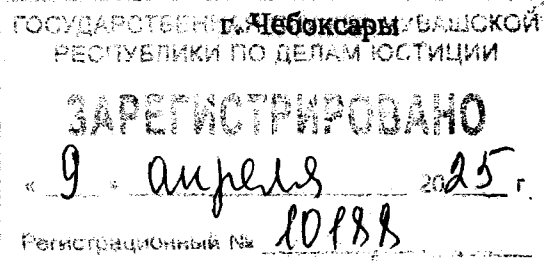 г. Чебоксары
ГОСУДАРСТВЕННАЯ ЧУВАШСКОЙ
РЕСПУБЛИКИ ПО ДЕЛАМ ЮСТИЦИИ
ЗАРЕГИСТРИРОВАНО
« 9 » апреля 2025 г.
Регистрационный № 10188